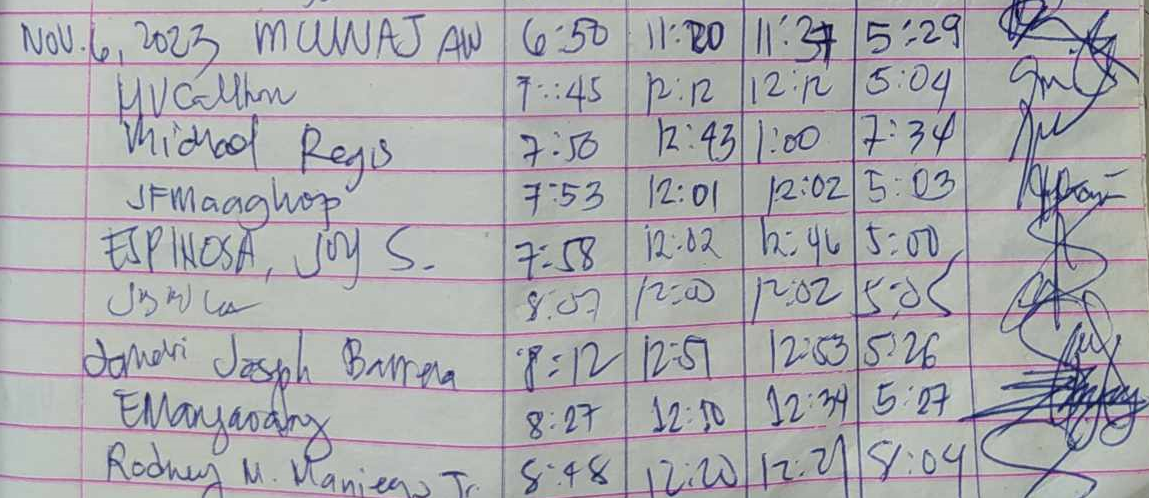 Nov. 6, 2023 MUNAJ AW 6:50 11:20 11:37 5:29
7:45 12:12 12:12 5:04
Michael Regis 7:50 12:43 1:00 7:34
JFMaaghop 7:53 12:01 12:02 5:03
ESPINOSA, JOY S. 7:58 12:02 12:46 5:00
8:07 12:00 12:02 5:05
Joseph Barrera 8:12 12:51 12:53 5:26
8:27 12:30 12:34 5:27
Rodney M. Maniego Jr. 8:48 12:20 12:21 8:04